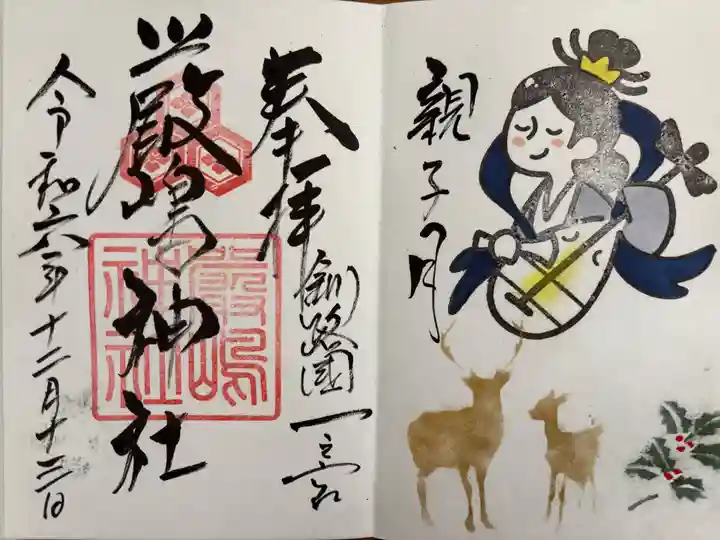 親子月
奉拝
釧路國一之宮
嚴島神社
令和六年十二月十二日
嚴嶋
神社